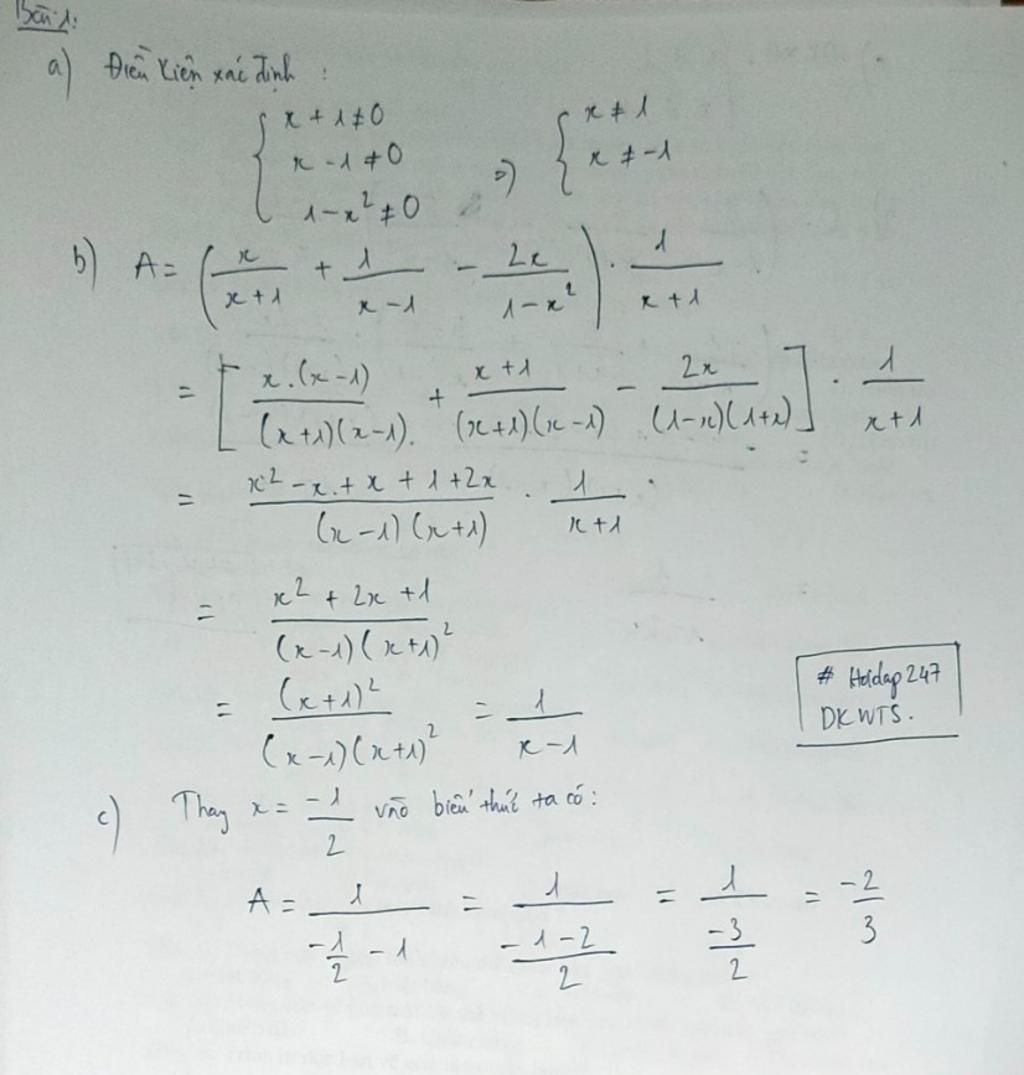 Bài 1:
a) Điều kiện xác định :
{ x + 1 ≠ 0
x - 1 ≠ 0
1 - x² ≠ 0 => { x ≠ 1
x ≠ -1
b) A = ( x/(x+1) + 1/(x-1) - 2x/(1-x²) ) . 1/(x+1)
= [ x.(x-1)/((x+1)(x-1)) + (x+1)/((x+1)(x-1)) - 2x/((1-x)(1+x)) ] . 1/(x+1)
= (x² - x + x + 1 + 2x)/((x-1)(x+1)) . 1/(x+1)
= (x² + 2x + 1)/((x-1)(x+1)²)
= (x+1)²/((x-1)(x+1)²) = 1/(x-1)
# Hoidap247
DKWTS.
c) Thay x = -1/2 vào biểu thức ta có:
A = 1/(-1/2 - 1) = 1/((-1-2)/2) = 1/(-3/2) = -2/3